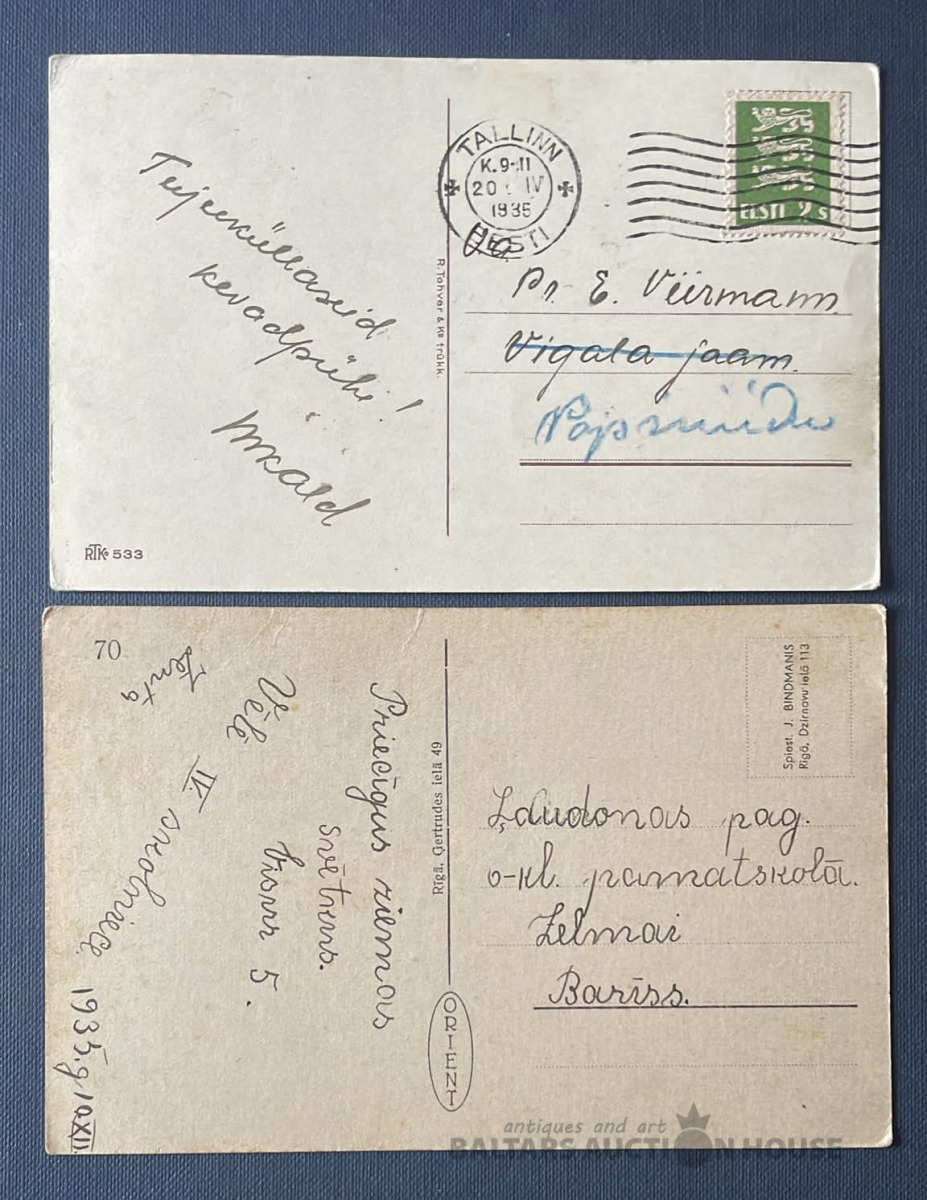 Tujeeküllaseid
kevadpühi!
Mkald
RTKo 533
R. Tohver & Ko trükk.
TALLINN
K. 9-11
20 IV
1935
EESTI
EESTI 2 S
Pr. E. Viirmann
Vigala jaam.
70
Priecīgus ziemas
svētkus.
Visur 5.
Vēlē IV. skolniece
Zenta
1935. g 10.XII.
Rīgā, Ģertrudes ielā 49
ORIENT
Spiest. J. BINDMANIS
Rīgā, Dzirnavu ielā 113
Ļaudonas pag.
6-kl. pamatskolā.
Zelmai
Bariss.
antiques and art
BALTARS AUCTION HOUSE